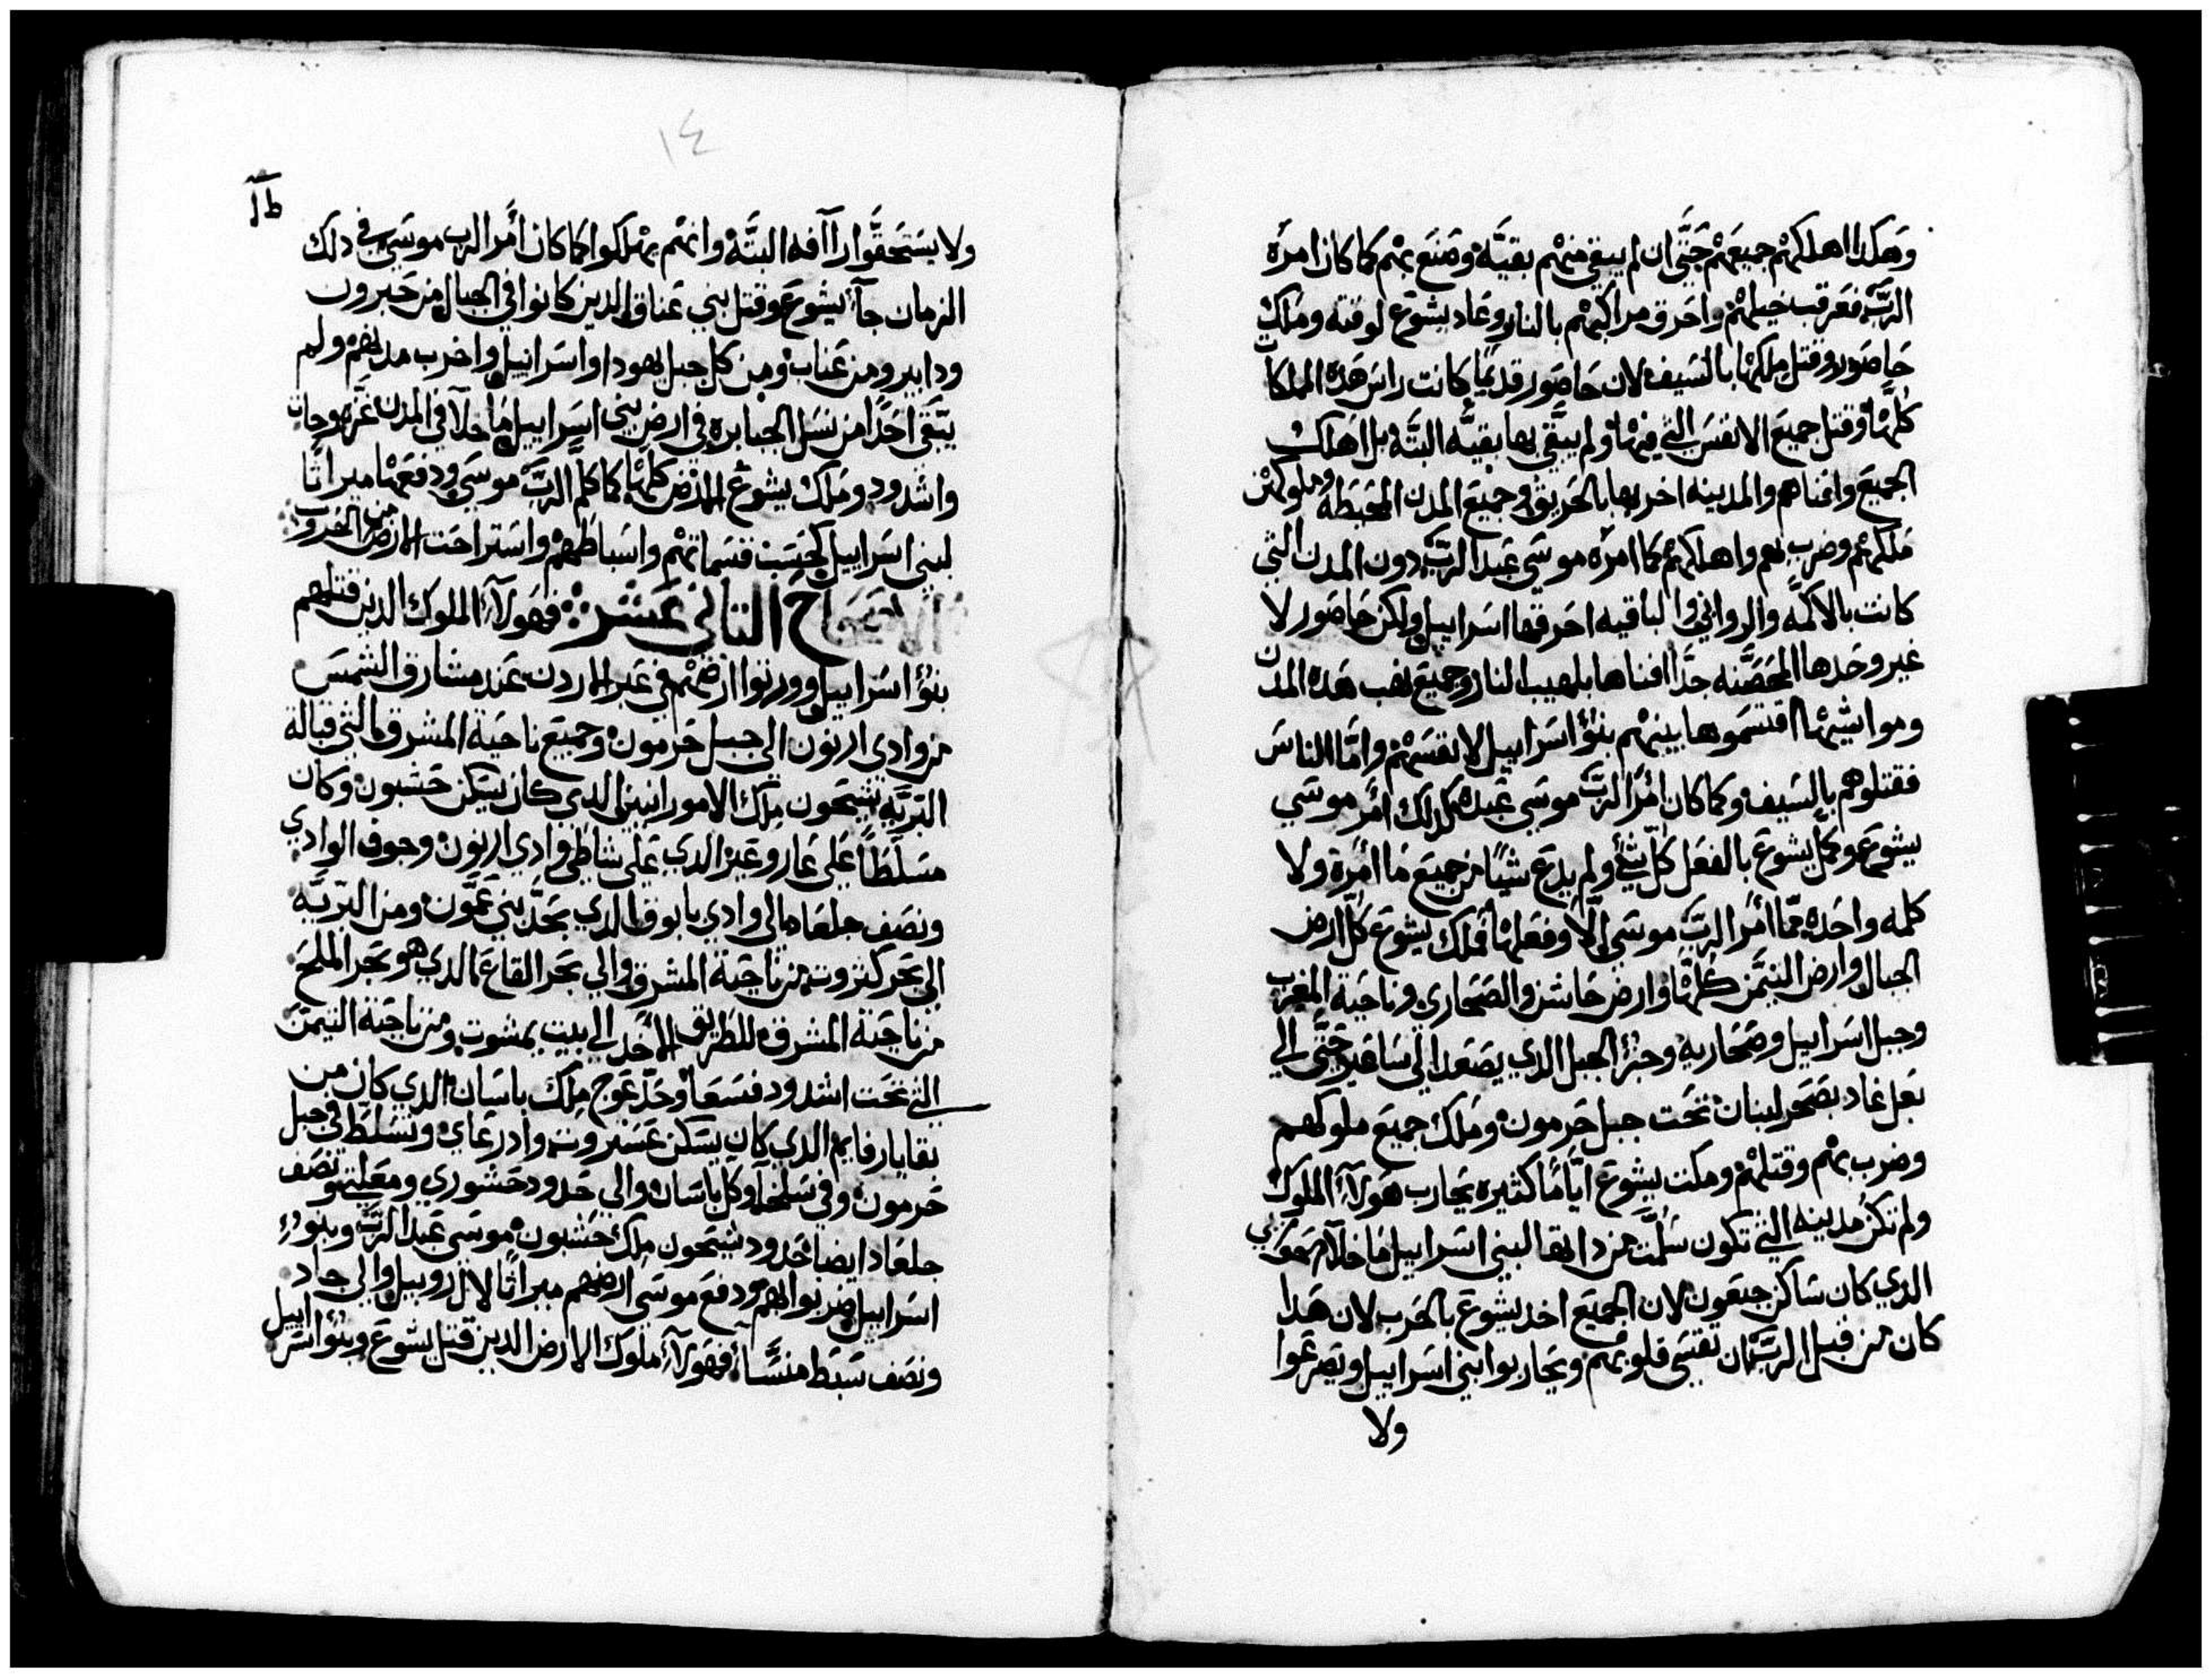 وهكدا اهلكهم جميعهم حتى ان لم يبقي منهم بقيه وصنع بهم كما كان امره
الرب فعرقب خيلهم واحرق مراكبهم بالنار وعاد يشوع لوقته وملك
حاصور وقتل ملكها بالسيف لان حاصور قديما كانت راس هده المملكات
كلها وقتل جميع الانفس التي فيها ولم يبقي بها بقيه البته بل اهلك
الجميع وافناهم والمدينه اخربها بالحريق وجميع المدن المحيطه وملوكهن
ملكهم وضرب بهم واهلكهم كما امره موسي عبد الرب دون المدن التي
كانت بالاكمه والروابي والباقيه احرقها اسراييل ولكن حاصور لا
غير وحدها المحصنه جدا افناها بلهيب النار وجميع نهب هده المدن
ومواشيها اقتسموها بينهم بنو اسراييل لانفسهم واما الناس
فقتلوهم بالسيف وكما كان امر الرب موسي عبده كدلك امر موسي
يشوع وكمل يشوع بالفعل كل شي ولم يدع شيا من جميع ما امره ولا
كلمه واحده مما امر الرب موسي الا وفعلها فملك يشوع كل ارض
الجبال وارض التيمن كلها وارض جاشن والصحاري وناحية المغرب
وجبل اسراييل وصحاريه وجزء الجبل الدي يصعد الي ساعير حتى الي
بعل غاد بصحر لبنان تحت جبل حرمون وملك جميع ملوكهم
وضرب بهم وقتلهم ومكت يشوع اياما كثيره يحارب هولاء الملوك
ولم تكن مدينه التي تكون سلمت من داتها لبني اسراييل ما خلا
الدي كان ساكن جبعون لان الجميع اخد يشوع بالحرب لان هدا
كان من قبل الرب ان تقسي قلوبهم ويحاربوا بني اسراييل ويصرعوا
ولا
١٤
ولا يستحقوا راافه البته وانهم يهلكوا كما كان امر الرب موسي في دلك
الزمان جاء يشوع وقتل بني عناق الدين كانوا في الجبال من حبرون
ودابير ومن عناب ومن كل جبل يهودا واسراييل واخرب مدنهم ولم
يبقي احدا من نسل الجبابره في ارض بني اسراييل ما خلا في المدن غزه وجات
واشدود وملك يشوع الارض كلها كما كلم الرب موسي ودفعها ميراثا
لبني اسراييل كحسب قسماتهم واسباطهم واستراحت الارض من الحروب
الاصحاح التاني عشر فهولاء الملوك الدين قتلهم
بنو اسراييل وورتوا ارضهم في عبر الاردن عند مشارق الشمس
من وادي ارنون الي جبل حرمون وجميع ناحية المشرق التي قبالة
البريه شيحون ملك الامورانيين الدي كان يسكن حشبون وكان
مسلطا علي عاروعير الدي علي شاطي وادي ارنون وجوف الوادي
ونصف جلعاد الي وادي يابوق الدي بحد بني عمون ومن البريه
الي بحر كنروت من ناحية المشرق والي بحر القاع الدي هو بحر الملح
من ناحية المشرق للطريق الاخد الي بيت يمشوت ومن ناحية التيمن
التي تحت اشدود فسعا وحد عوج ملك باسان الدي كان من
بقايا رفايم الدي كان يسكن عستروت وادرعاي وتسلط في جبل
حرمون وفي سلخا وكل باسان والي حدود حشوري ومعلتي ونصف
جلعاد ايضا حدود شيحون ملك حشبون موسي عبد الرب وبنو
اسراييل ضربوا بهم ودفع موسي ارضهم ميراثا لال روبيل والي جاد
ونصف سبط منسا فهولاء ملوك الارض الدين قتل يشوع وبنو اسراييل